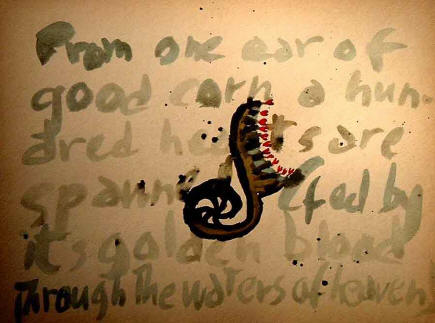 From one ear of
good corn a hun-
dred hearts are
by
its golden blood
Through the waters of heaven